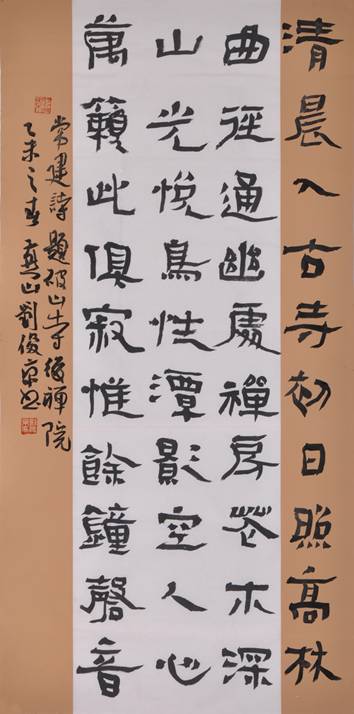 清晨入古寺初日照高林
曲徑通幽處禪房花木深
山光悅鳥性潭影空人心
萬籟此俱寂惟餘鐘磬音
常建詩題破山寺後禪院
乙未之春燕山劉俊京書